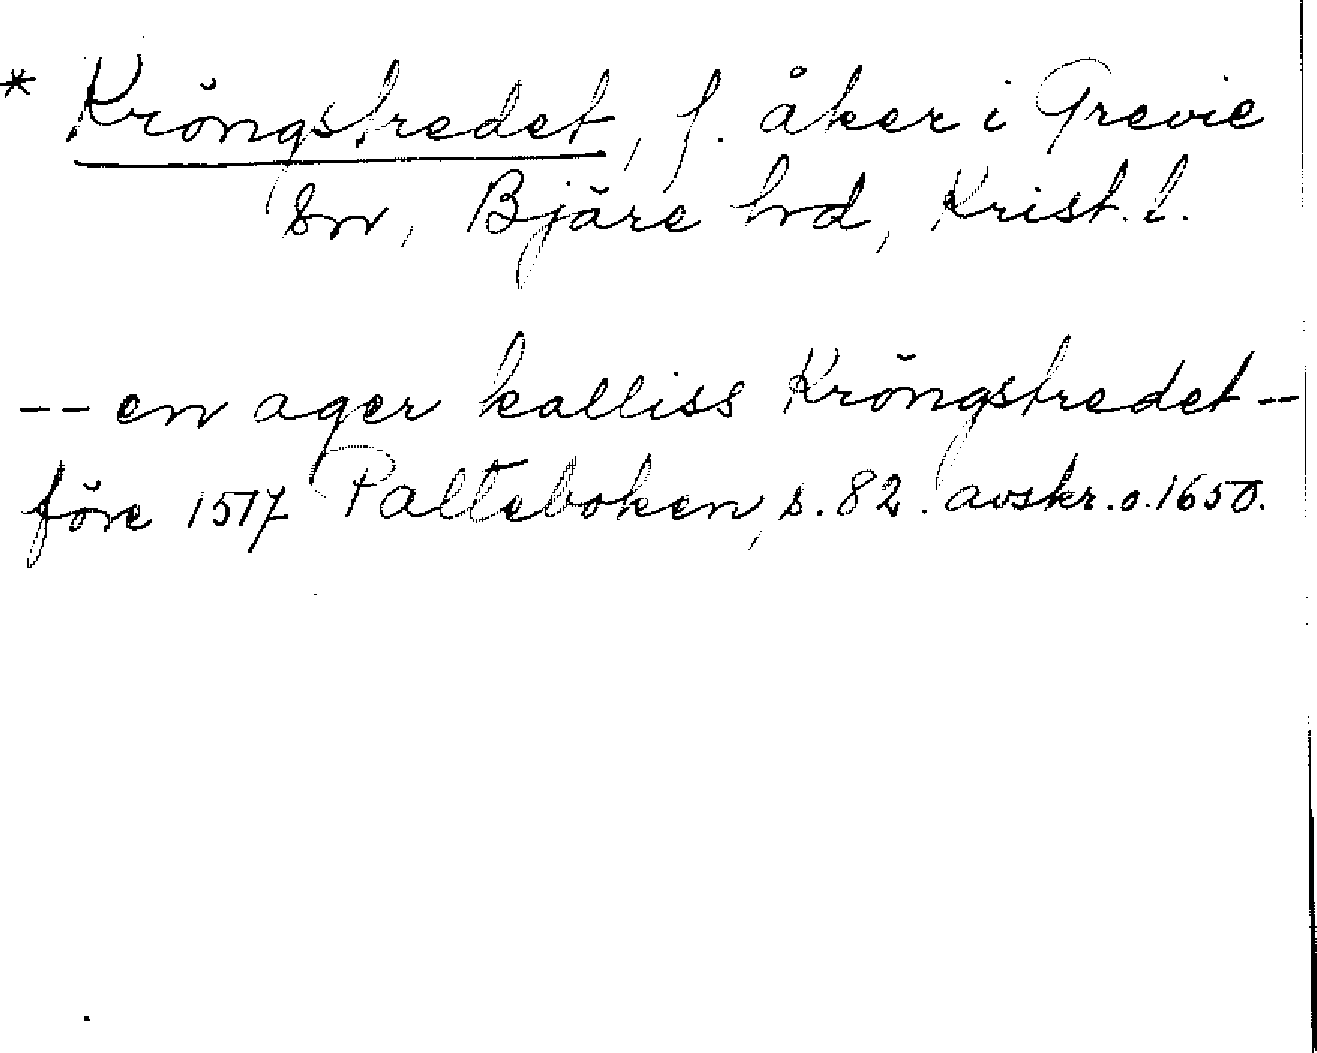 * Kröngstredet, f. åker i Grevie
sn, Bjäre hd, Krist. l.
-- en ager kalliss Kröngstredet -
före 1517 Palteboken, s. 82. avskr. o. 1650.